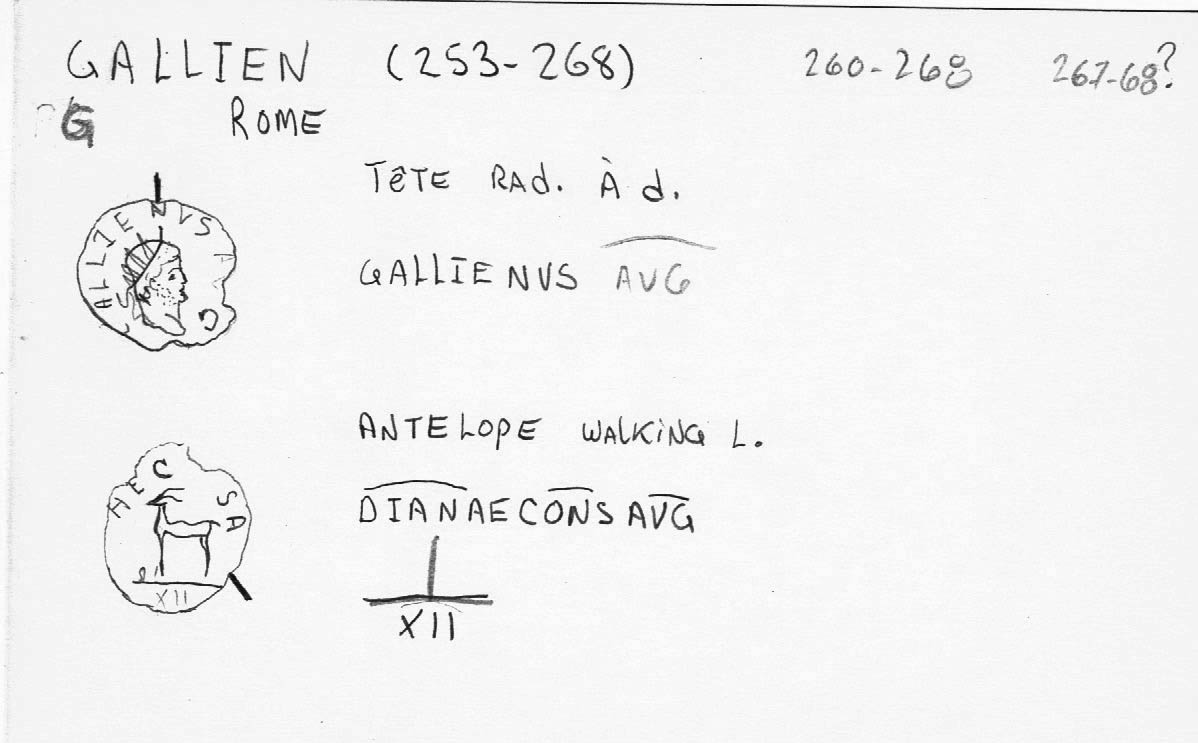 GALLIEN (253-268) 260-268 267-68?
G ROME
TêTE RAd. À d.
GALLIENVS I
C
GALLIENVS AVG
ANTELOPE WALKiNG L.
AEC SA
XII
DIANAECONSAVG
XII